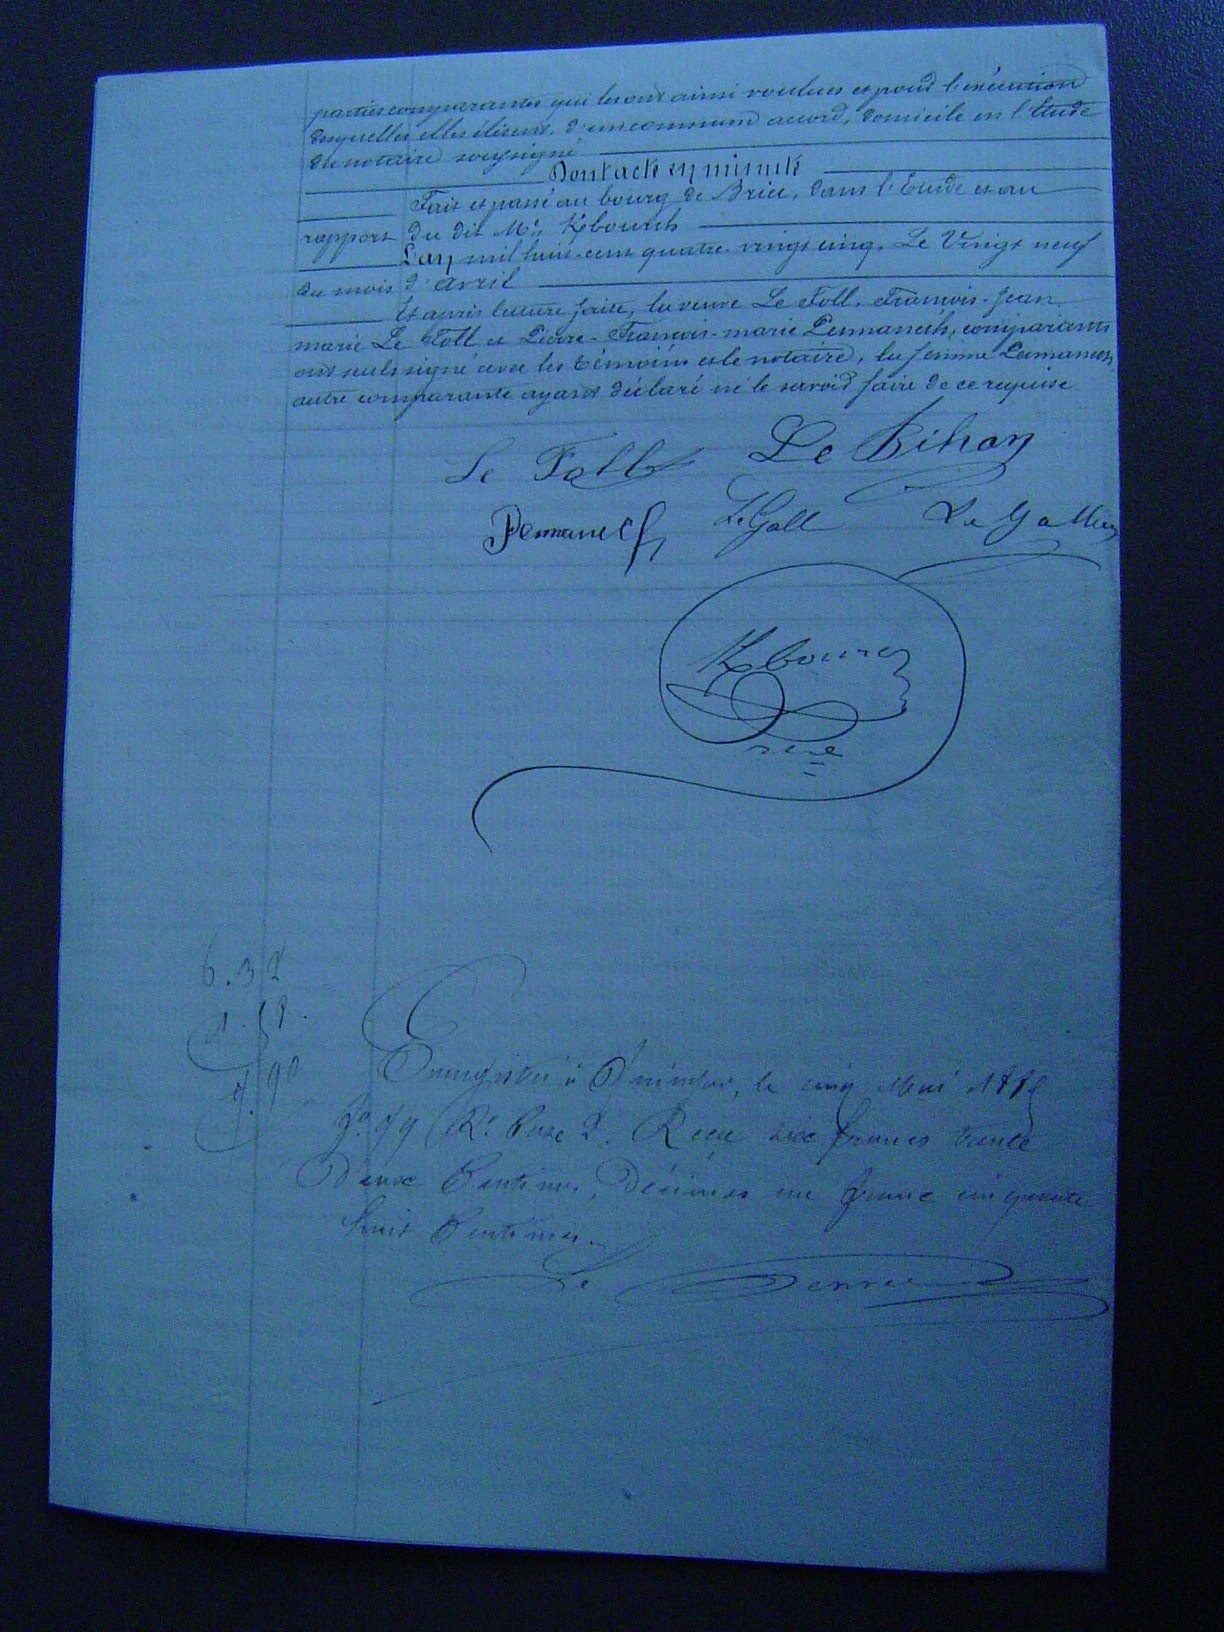 parties comparantes qui les ont ainsi voulues et pour l'exécution
desquelles elles élisent, d'un commun accord, domicile en l'Etude
du notaire soussigné
Dont acte en minute
Fait et passé au bourg de Briec, dans l'Etude et au
rapport du dit Me Kbourch
L'an mil huit-cent quatre-vingt cinq. Le Vingt neuf
du mois d'avril
Et après lecture faite, la veuve Le Foll, François-Jean
marie Le Foll et Pierre-François-marie Penmanech, comparants
ont seuls signé avec les témoins et le notaire, la femme Penmanech,
autre comparante ayant déclaré ne le savoir faire de ce requise
Le Foll Le Bihan
Penmanech Le Gall
Kbourch
6.32
1.58
7.90
Enregistré à Quimper, le cinq Mai 1885
fo 49 Ro Case 2. Reçu six francs trente
Deux Centimes, Décimes un franc cinquante
huit Centimes.
Le